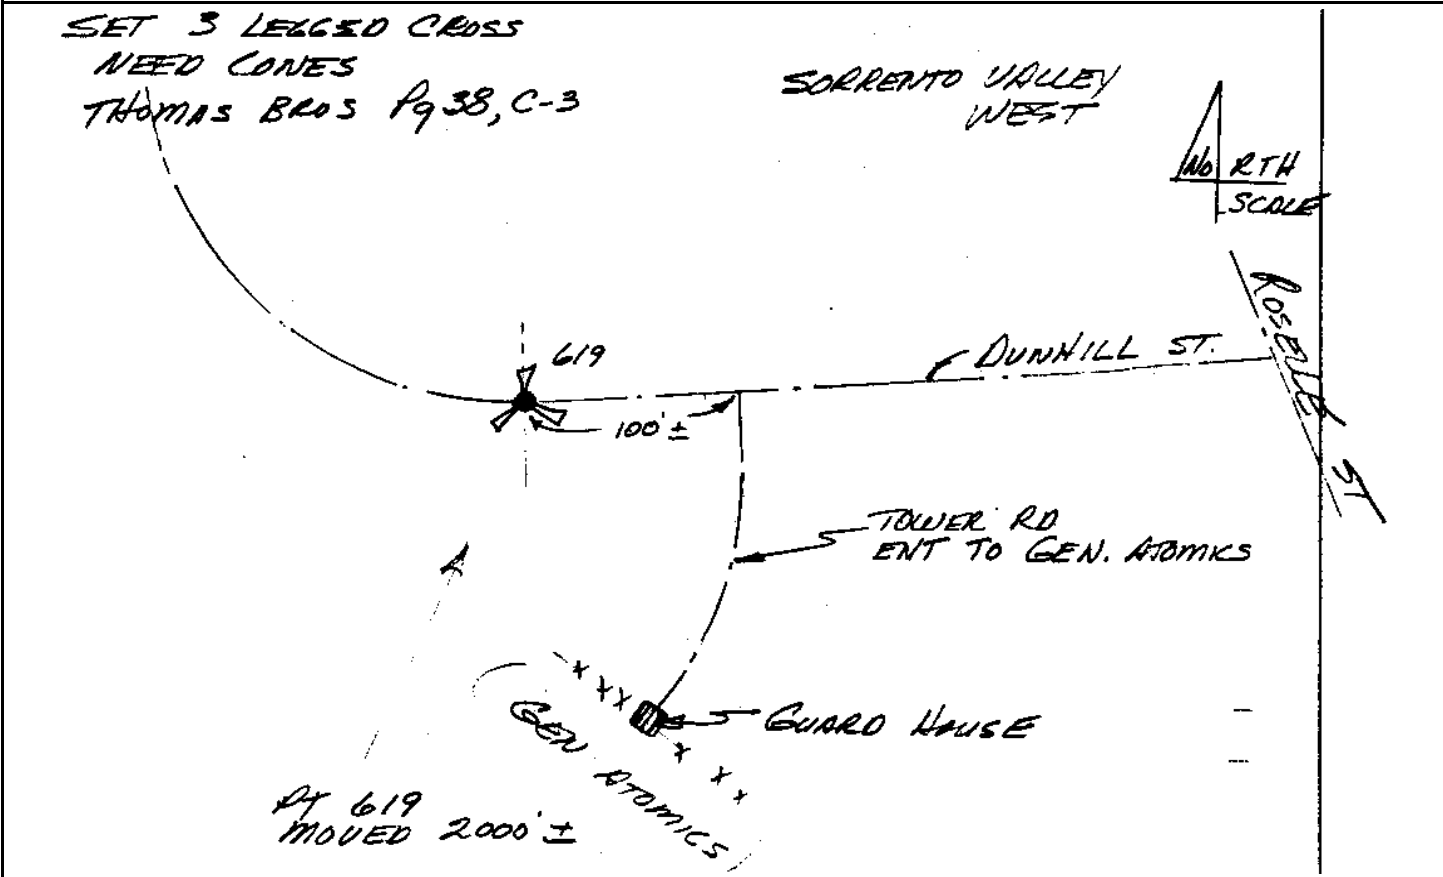 SET 3 LEGGED CROSS
NEED CONES
THOMAS BROS Pg 38, C-3
SORRENTO VALLEY
WEST
NO RTH
SCALE
ROSELLE ST
619
DUNHILL ST.
100' ±
TOWER RD
ENT TO GEN. ATOMICS
GUARD HOUSE
GEN ATOMICS
PT 619
MOVED 2000' ±